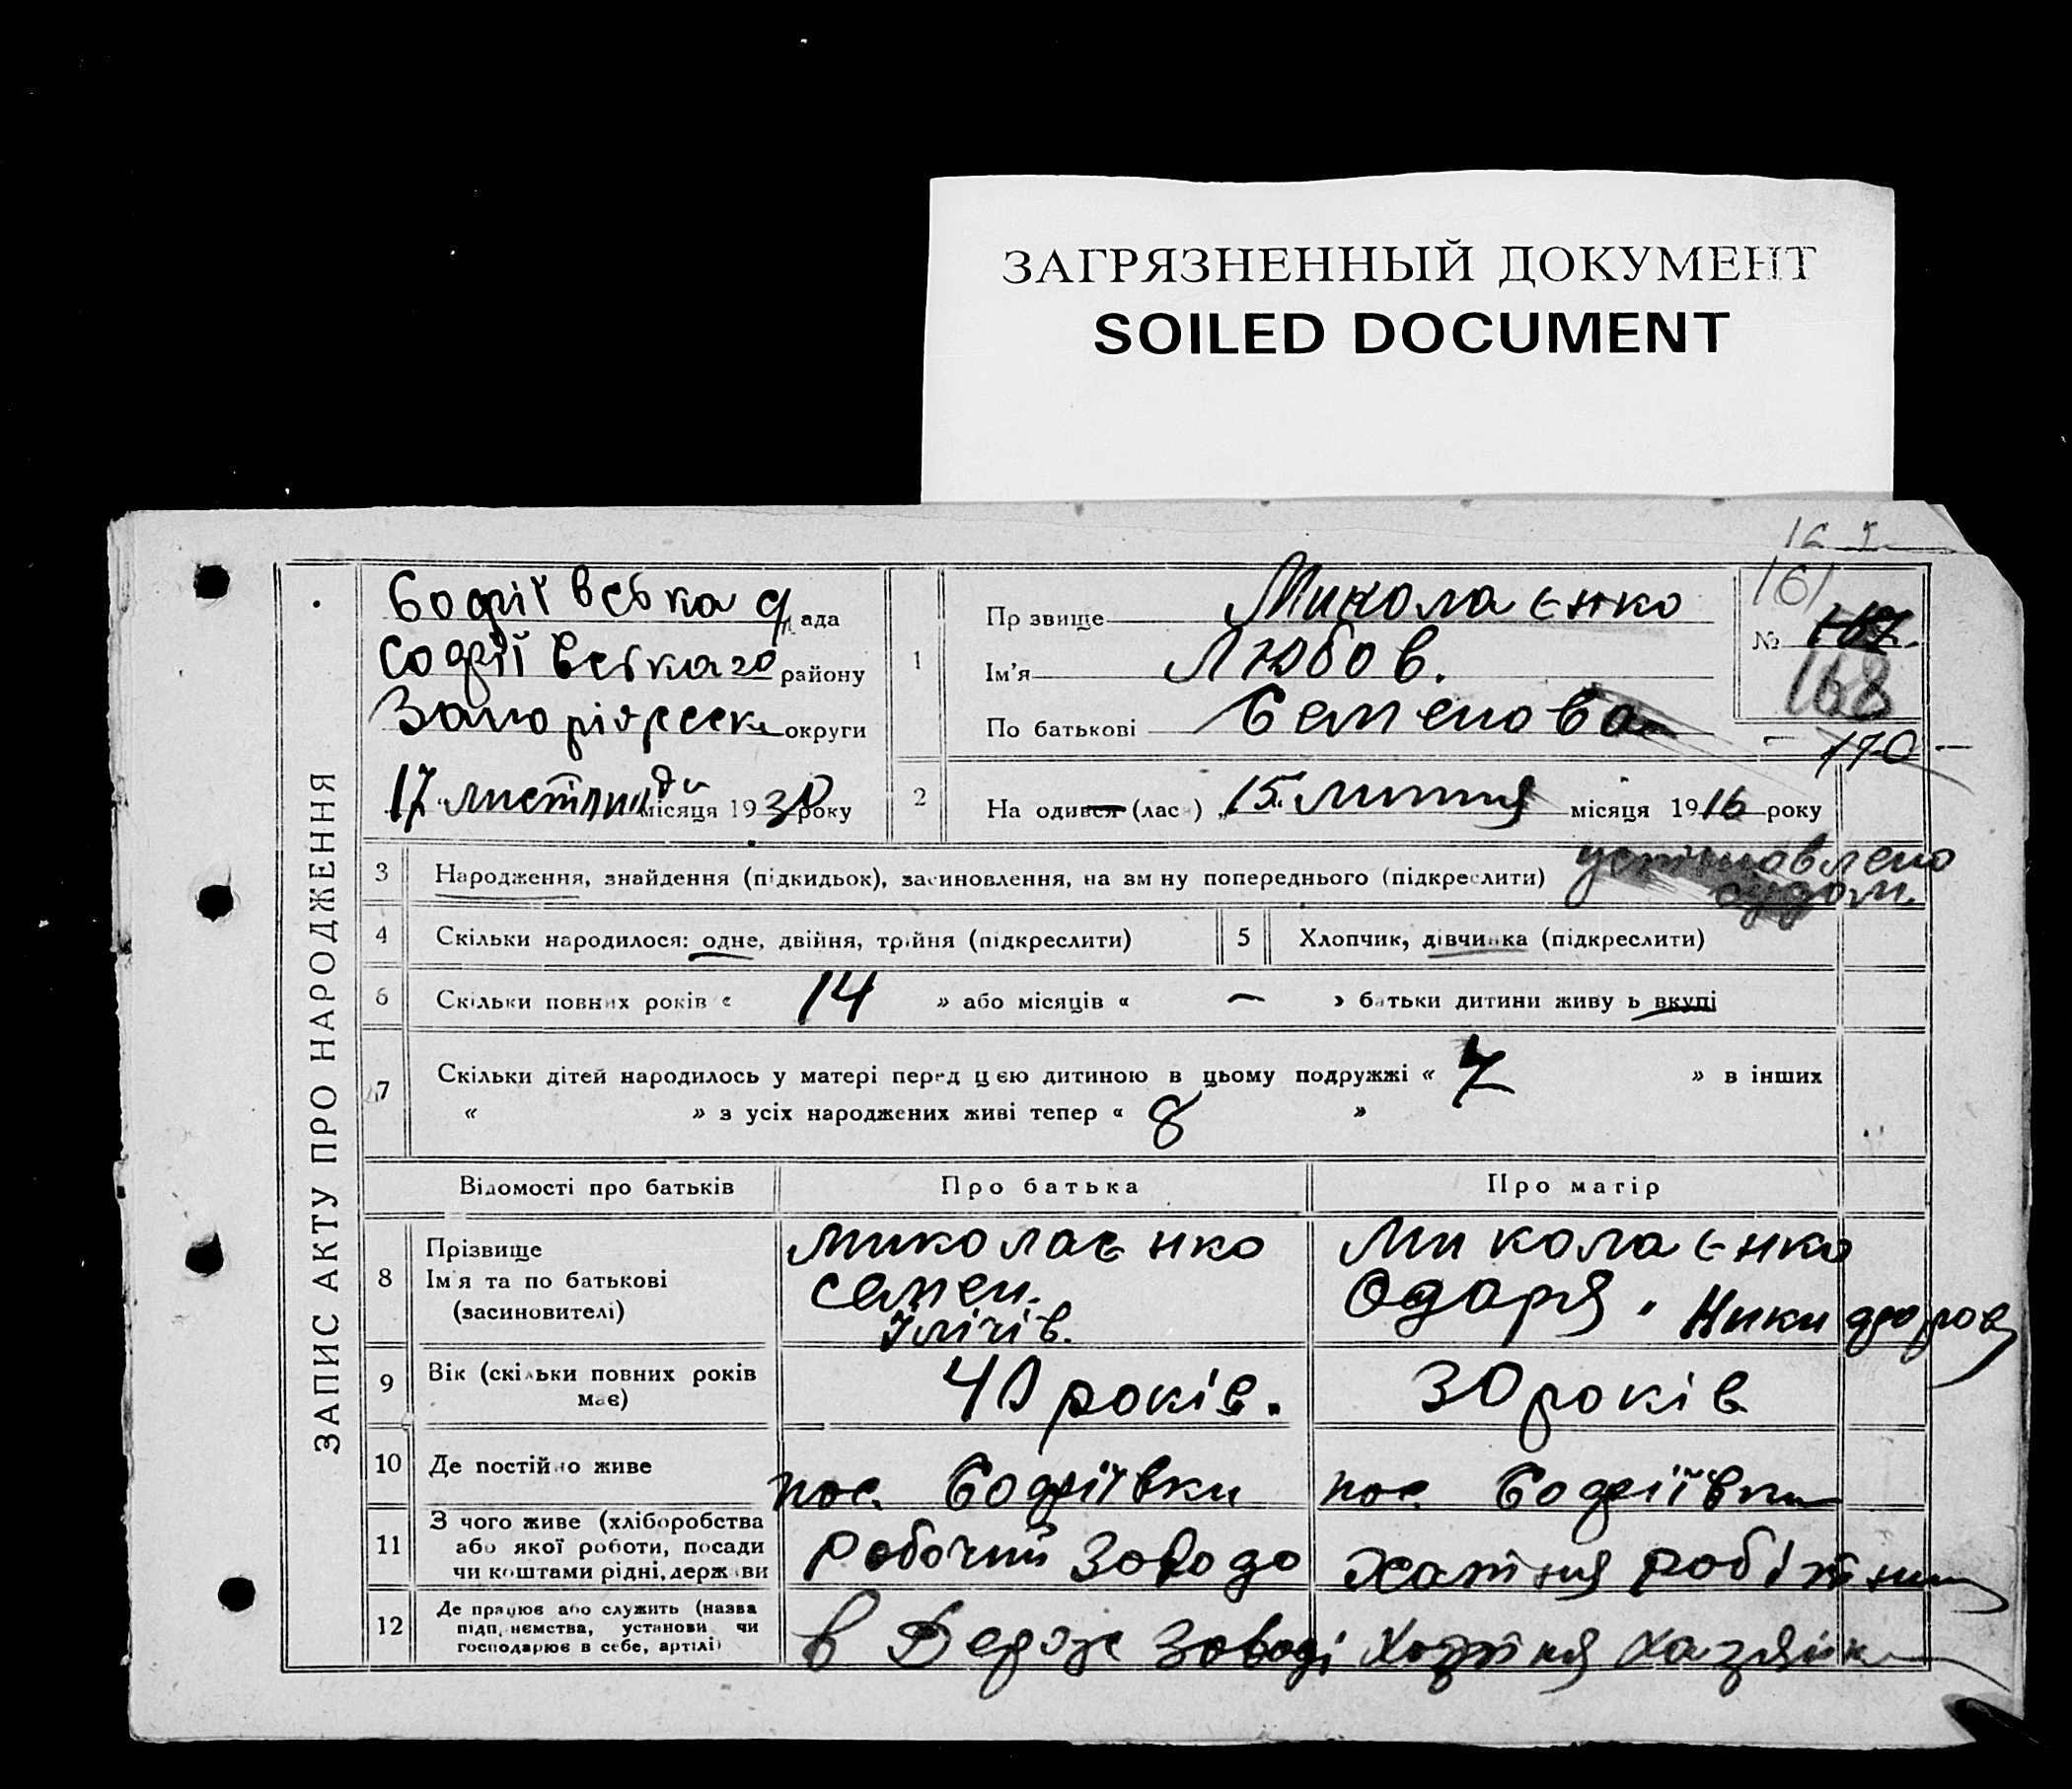 ЗАГРЯЗНЕННЫЙ ДОКУМЕНТ
SOILED DOCUMENT
ЗАПИС АКТУ ПРО НАРОДЖЕННЯ
Софіївська рада
Софіївського району
Запоріжськ округи
17 листопада місяця 1930 року
1
Прзвище Миколаєнко
Ім'я Любов.
По батькові Семенова
161
№ 167.
168
170
2 На одився (лас) „15. липня місяця 1916 року
3 Народження, знайдення (підкидьок), засиновлення, на змну попереднього (підкреслити) установлено
судом.
4 Скільки народилося: одне, двійня, трійня (підкреслити) 5 Хлопчик, дівчинка (підкреслити)
6 Скільки повних років « 14 » або місяців « — » батьки дитини живу ь вкупі
7 Скільки дітей народилось у матері перед цією дитиною в цьому подружжі « 7 » в інших
« » з усіх народжених живі тепер « 8 »
Відомості про батьків Про батька Про матір
8 Прізвище
Ім'я та по батькові
(засиновителі)
Миколаєнко
Семен.
Ілічів.
Миколаєнко
Одаря. Никифоров
9 Вік (скільки повних років
має)
40 років. 30 років
10 Де постійно живе пос. Софіївки пос. Софіївки
11 З чого живе (хліборобства
або якої роботи, посади
чи коштами рідні, держави
Робочий Заводо Хатня робітниц
12 Де працює або служить (назва
підпиємства, установи чи
господарює в себе, артілі)
в Держ Заводі Хатня хазяйк